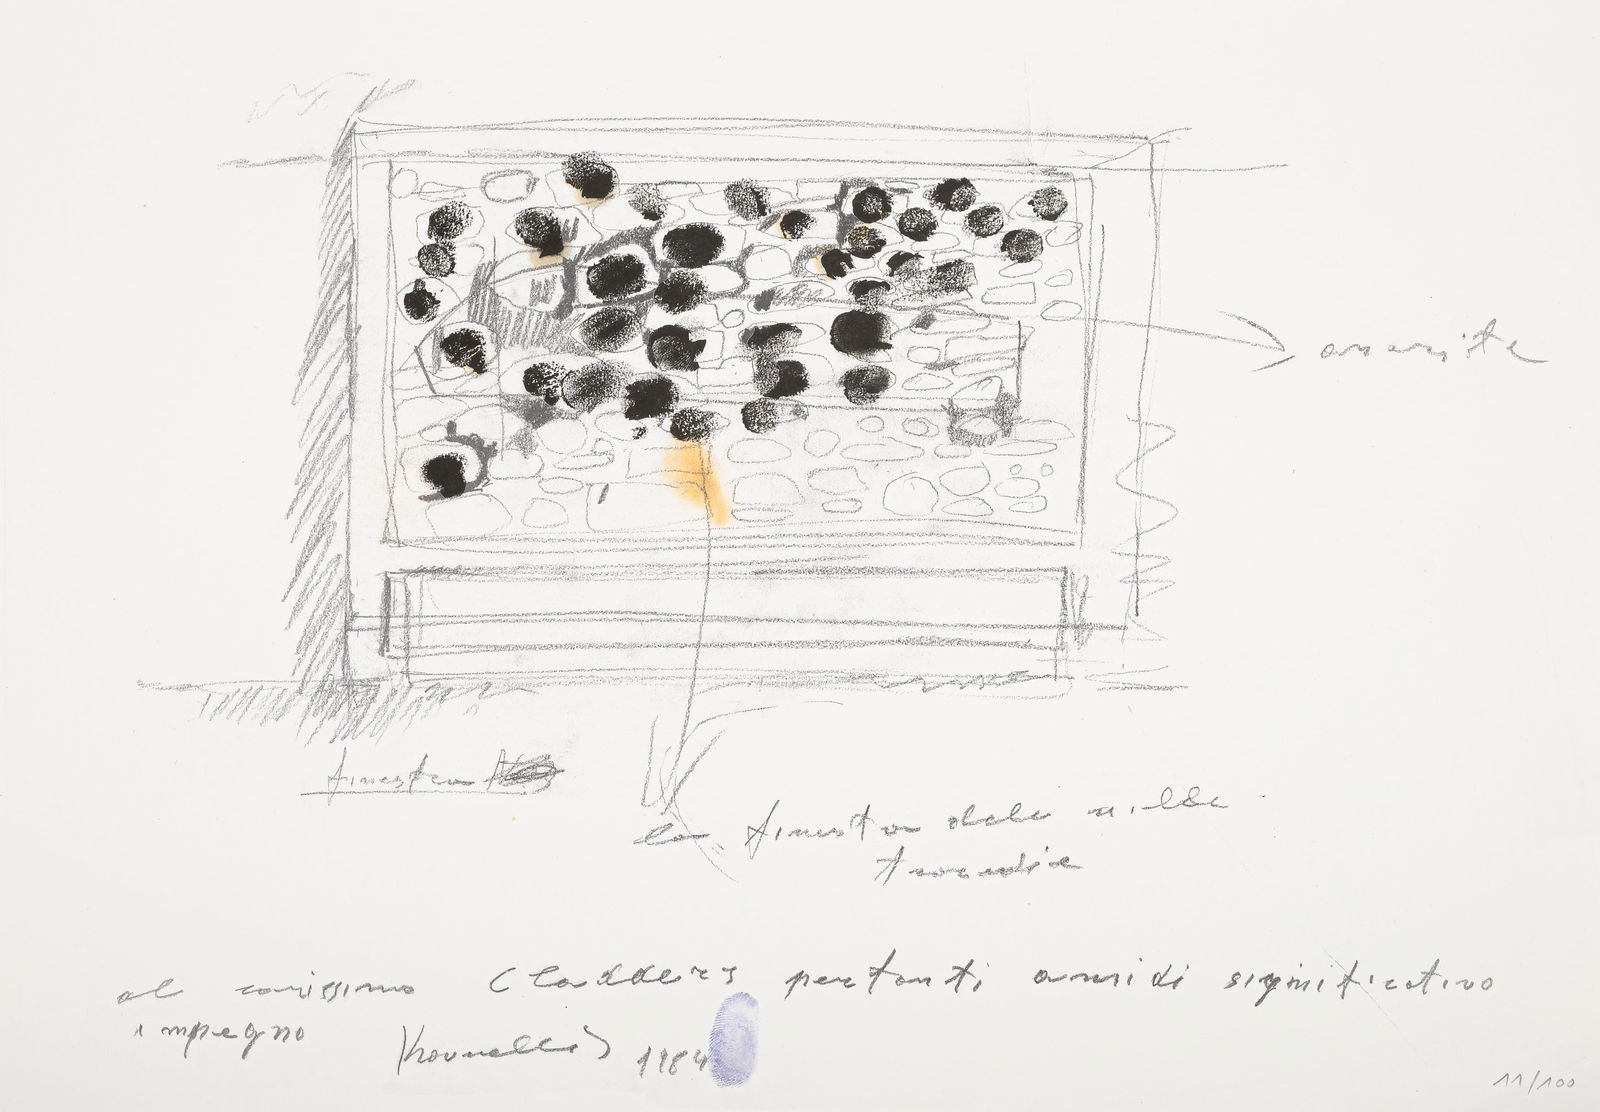 finestra
la finestra delle mille
tragedie
al carissimo Cladders per tanti anni di significativo
impegno Kounellis 1984
11/100